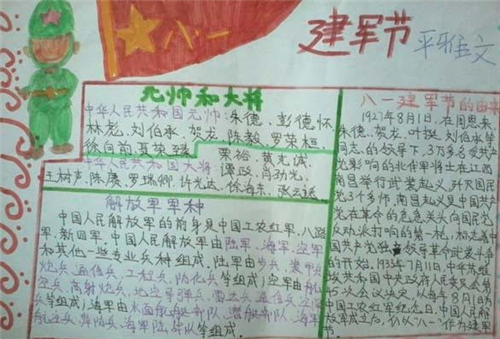 八一
建军节
平雅文
元帅和大将
中华人民共和国元帅:朱德、彭德怀
林彪、刘伯承、贺龙、陈毅、罗荣桓、
徐向前、聂荣臻
中华人民共和国大将
粟裕、黄克诚
谭政、肖劲光、
王树声、陈赓、罗瑞卿、许光达、徐海东、张云逸
解放军军种
中国人民解放军的前身是中国工农红军、八路
军、新四军、中国人民解放军由陆军、海军、空军
和其他一些专业兵种组成。陆军由步兵、装甲兵
炮兵、通信兵、工程兵、防化兵等组成;空军由航
空兵、高射炮兵、地空导弹兵、雷达兵、通信兵
等组成;海军由水面舰艇部队、潜艇部队、海军航
等组成。
八一建军节的由来
1927年8月1日,在周恩来
朱德、贺龙、叶挺、刘伯承等
同志的领导下,3万多名受共产
党影响的北伐军将士在江西
南昌举行武装起义,歼灭国民
党3个多师。南昌起义是中国共产
党在革命的危急关头向国民党
反动派打响的第一枪,标志着中
国共产党独立领导革命武装斗争
的开始。1933年7月11日,中华苏维
埃共和国中央政府人民委员会
方大会议决定,从每年8月1日为
中国工农红军纪念日。中国人民解
放军成立后,仍以“八一”作为建军节